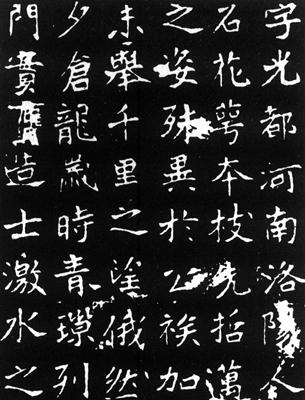 字光都河南洛陽人
石花萼本枝哲邁
之姿殊異於公族加
未舉千里之望俄然
夕倉龍歲時青璅列
門賁造士激水之